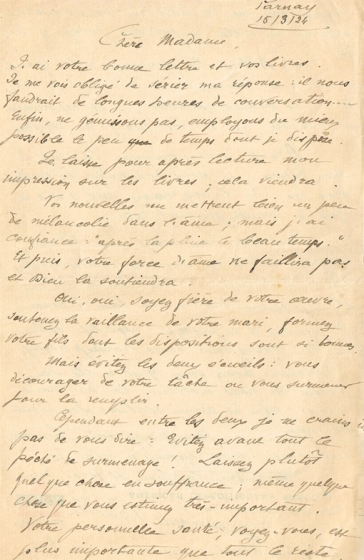 Tarnay
15/3/34
Chère Madame,
J'ai votre bonne lettre et vos livres.
Je me vois obligé de sérier ma réponse : il nous
faudrait de longues heures de conversation...
Enfin, ne gémissons pas, employons du mieux
possible le peu de temps dont je dispose.
Je laisse pour après lecture mon
impression sur les livres, cela viendra.
Vos nouvelles me mettent bien un peu
de mélancolie dans l'âme ; mais j'ai
confiance : "après la pluie le beau temps."
Et puis, votre force d'âme ne faillira pas
et Dieu la soutiendra.
Oui, oui, soyez fière de votre œuvre,
soutenez la vaillance de votre mari, formez
votre fils dont les dispositions sont si bonnes.
Mais évitez les deux écueils : vous
décourager de votre tâche ou vous surmener
pour la remplir.
Cependant entre les deux je ne crains
pas de vous dire : Evitez avant tout le
péché de surmenage ! Laissez plutôt
quelque chose en souffrance ; même quelque
chose que vous estimez très-important.
Votre personnelle santé, voyez-vous, est
plus importante que tout le reste